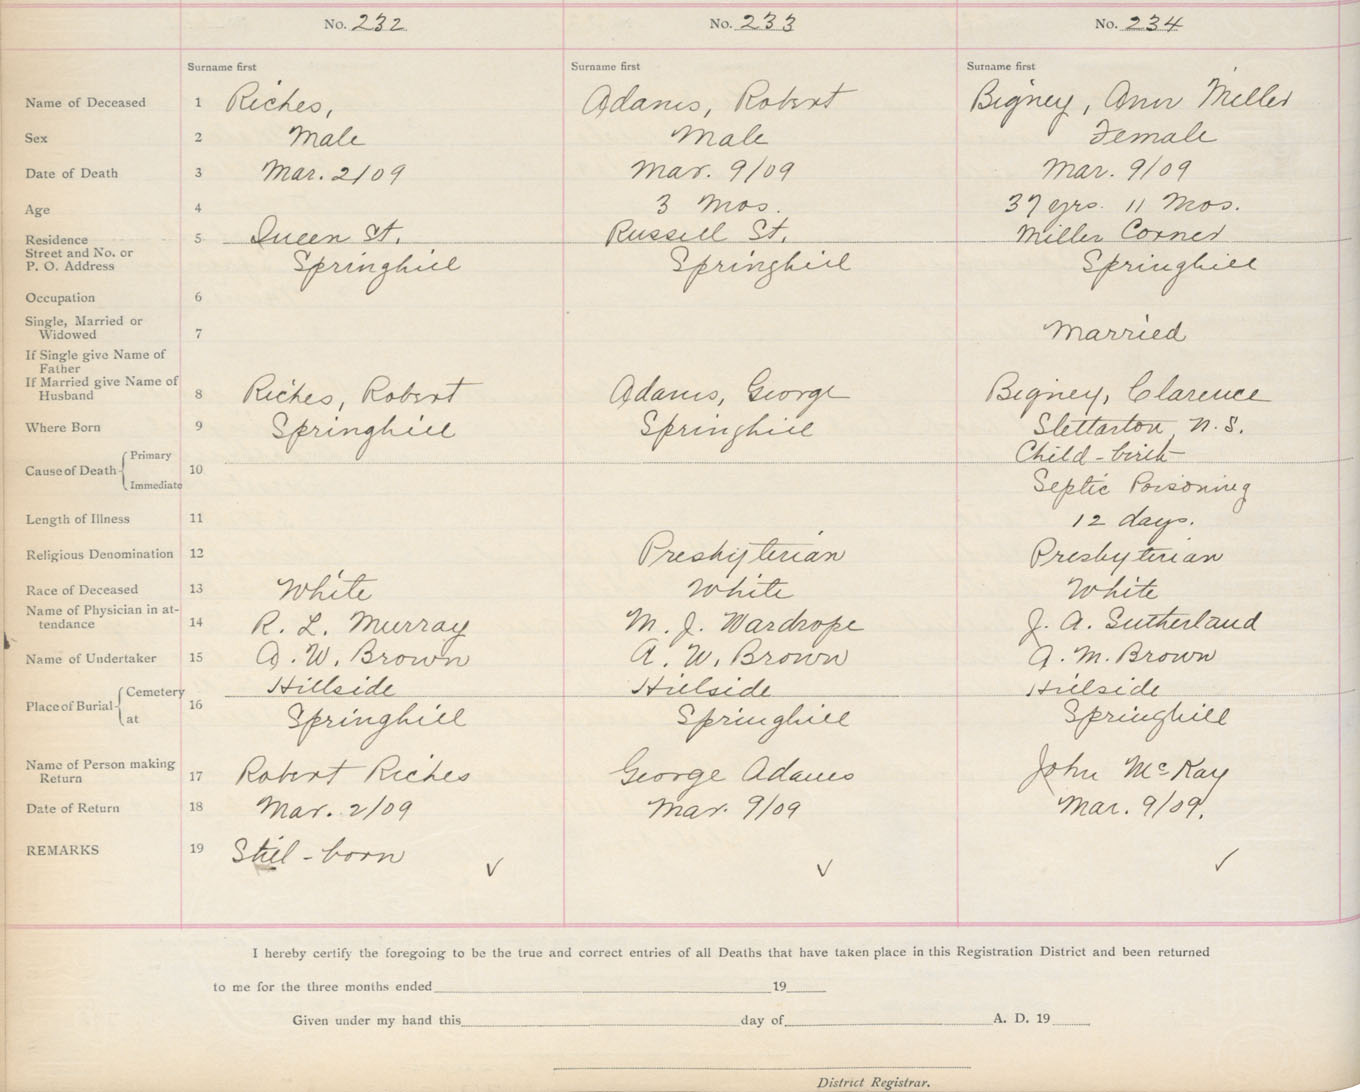 No. 232 No. 233 No. 234
Surname first Surname first Surname first
Name of Deceased 1 Riches, Adams, Robert Bigney, Ann Miller
Sex 2 Male Male Female
Date of Death 3 Mar. 2/09 Mar. 9/09 Mar. 9/09
Age 4 3 Mos. 37 yrs. 11 Mos.
Residence 5 Queen St. Russell St. Miller Corner
Street and No. or
P. O. Address Springhill Springhill Springhill
Occupation 6
Single, Married or
Widowed 7 Married
If Single give Name of
Father
If Married give Name of
Husband 8 Riches, Robert Adams, George Bigney, Clarence
Where Born 9 Springhill Springhill Stettarton, N.S.
Cause of Death Primary 10 Child-birth
Immediate Septic Poisoning
Length of Illness 11 12 days.
Religious Denomination 12 Presbyterian Presbyterian
Race of Deceased 13 White White White
Name of Physician in at-
tendance 14 R. L. Murray M. J. Wardrope J. A. Sutherland
Name of Undertaker 15 A. W. Brown A. W. Brown A. M. Brown
Place of Burial Cemetery 16 Hillside Hillside Hillside
at Springhill Springhill Springhill
Name of Person making
Return 17 Robert Riches George Adams John McKay
Date of Return 18 Mar. 2/09 Mar. 9/09 Mar. 9/09.
REMARKS 19 Still-born
I hereby certify the foregoing to be the true and correct entries of all Deaths that have taken place in this Registration District and been returned
to me for the three months ended 19
Given under my hand this day of A. D. 19
District Registrar.